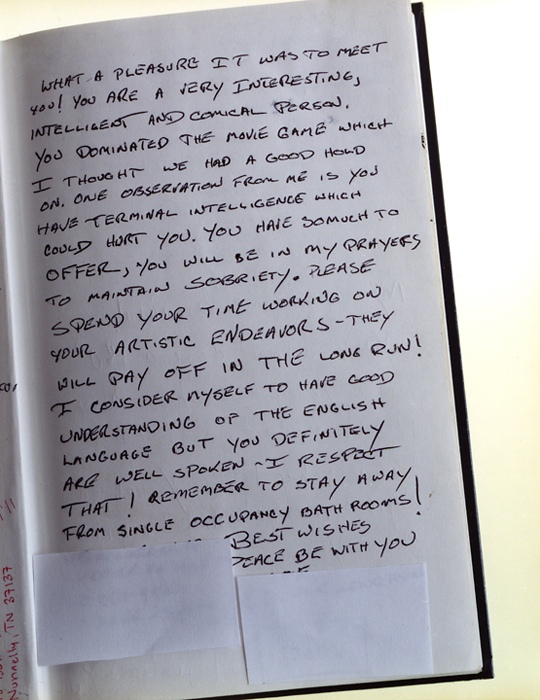 WHAT A PLEASURE IT WAS TO MEET
YOU! YOU ARE A VERY INTERESTING,
INTELLIGENT AND COMICAL PERSON.
YOU DOMINATED THE MOVIE GAME WHICH
I THOUGHT WE HAD A GOOD HOLD
ON. ONE OBSERVATION FROM ME IS YOU
HAVE TERMINAL INTELLIGENCE WHICH
COULD HURT YOU. YOU HAVE SOMUCH TO
OFFER, YOU WILL BE IN MY PRAYERS
TO MAINTAIN SOBRIETY. PLEASE
SPEND YOUR TIME WORKING ON
YOUR ARTISTIC ENDEAVORS - THEY
WILL PAY OFF IN THE LONG RUN!
I CONSIDER MYSELF TO HAVE GOOD
UNDERSTANDING OF THE ENGLISH
LANGUAGE BUT YOU DEFINITELY
ARE WELL SPOKEN - I RESPECT
THAT! REMEMBER TO STAY AWAY
FROM SINGLE OCCUPANCY BATH ROOMS!
BEST WISHES
PEACE BE WITH YOU
Nunnelly, TN 37137